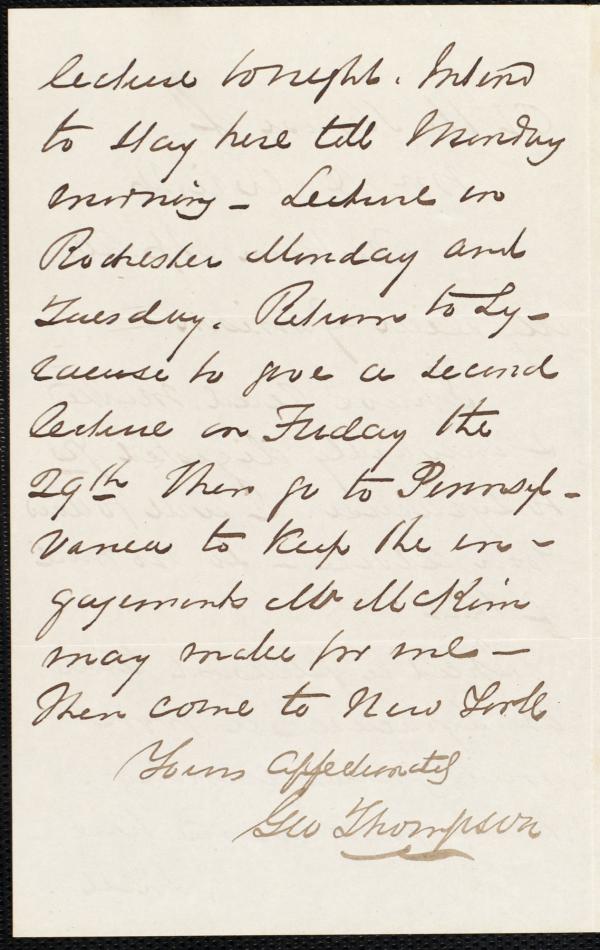 lecture tonight. Intend
to stay here till Monday
morning - Lecture in
Rochester Monday and
Tuesday. Return to Sy-
racuse to give a second
lecture on Friday the
29th then go to Pennsyl-
vania to keep the en-
gagements Mr McKim
may make for me -
then come to New York
Yours affectionately
Geo Thompson